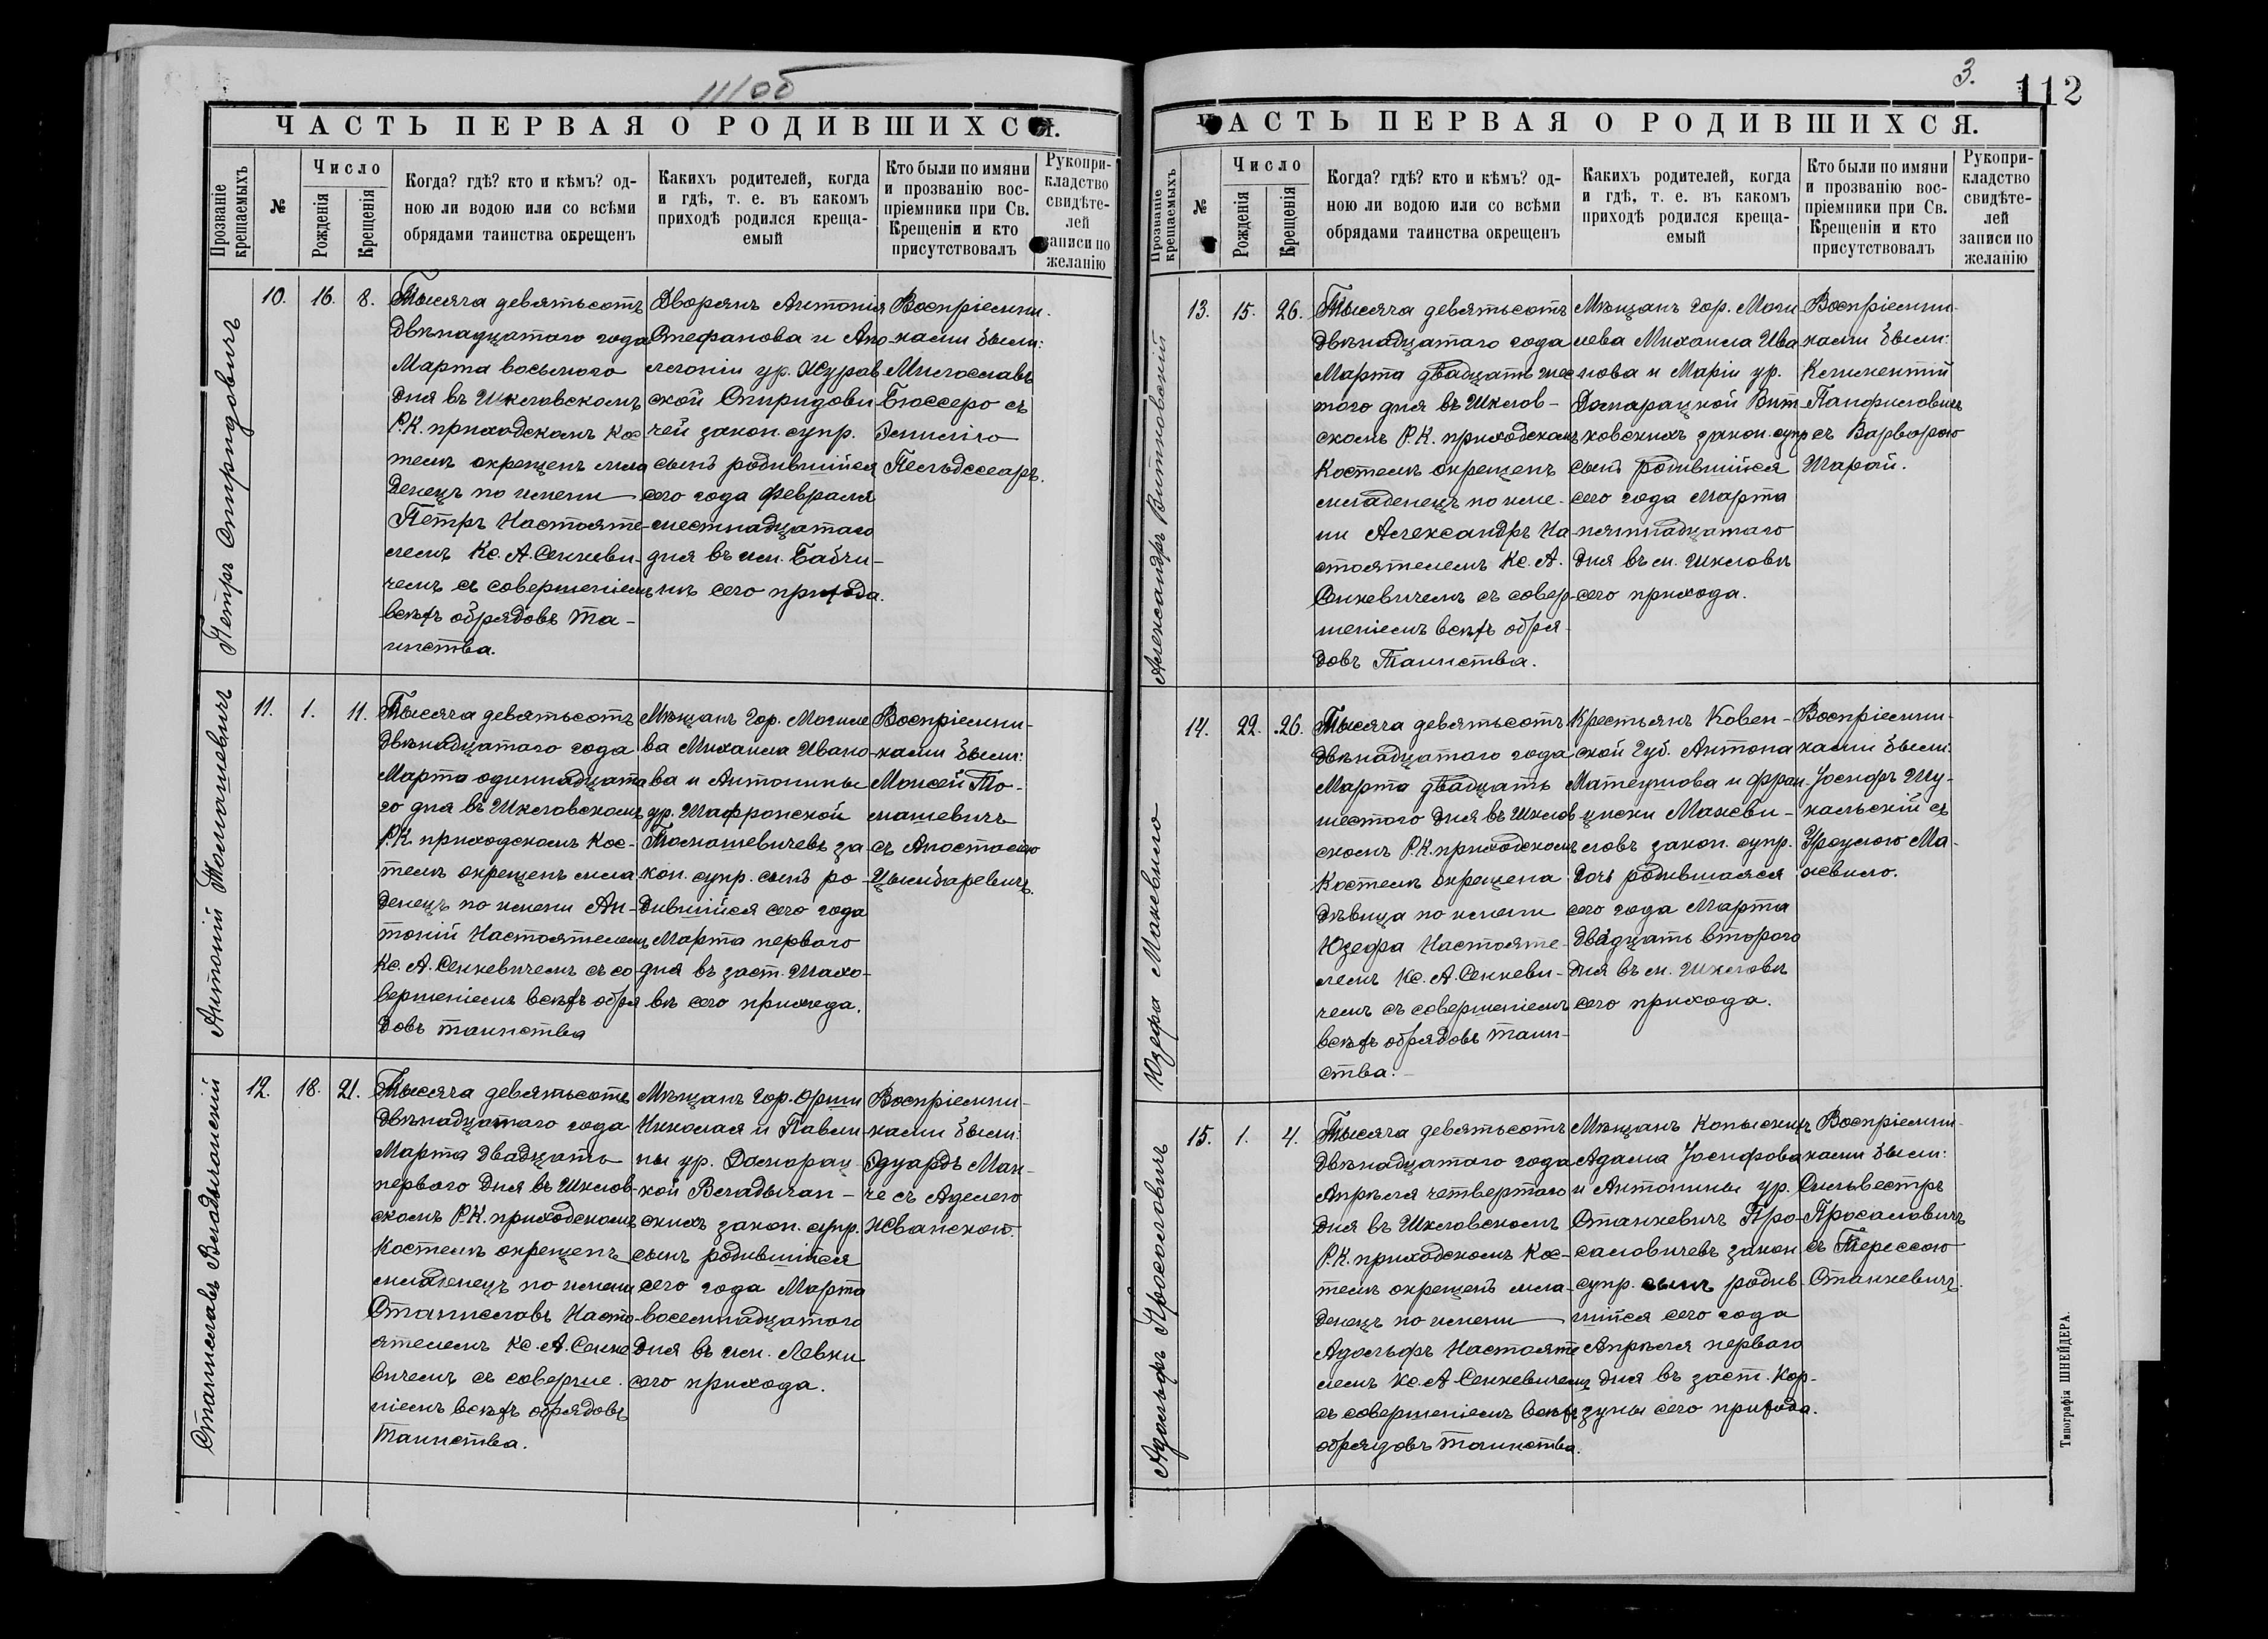 111об
ЧАСТЬ ПЕРВАЯ О РОДИВШИХСЯ.
Прозваніе крещаемыхъ
№
Число
Рожденія
Крещенія
Когда? гдѣ? кто и кѣмъ? од-
ною ли водою или со всѣми
обрядами таинства окрещенъ
Какихъ родителей, когда
и гдѣ, т. е. въ какомъ
приходѣ родился креща-
емый
Кто были по имяни
и прозванію вос-
пріемники при Св.
Крещеніи и кто
присутствовалъ
Рукопри-
кладство
свидѣте-
лей
записи по
желанію
Петръ Спиридовичъ
10.
16.
8.
Тысяча девятьсотъ
двѣнадцатаго года
Марта восьмого
дня въ Шкловскомъ
Р.К. приходскомъ Кос
телѣ окрещенъ мла
денецъ по имени
Петръ Настояте-
лемъ Кс. А. Сенкеви-
чемъ съ совершеніемъ
всѣхъ обрядовъ та-
инства.
Дворянъ Антонія
Стефанова и Апо-
лоніи ур. Журав
ской Спиридови
чей закон. супр.
сынъ родившійся
сего года Февраля
шестнадцатаго
дня въ им. Бабчи-
нѣ сего прихода.
Воспріемни-
ками были:
Милославъ
Бюссеро съ
Эмиліею
Пельдссеаръ.
Антоній Томашевичъ
11.
1.
11.
Тысяча девятьсотъ
двѣнадцатаго года
Марта одиннадцата
го дня въ Шкловскомъ
Р.К. приходскомъ Кос-
телѣ окрещенъ мла
денецъ по имени Ан-
тоній Настоятелемъ
Кс. А. Сенкевичемъ съ со
вершеніемъ всѣхъ обря
довъ таинства
Мѣщанъ Гор. Могиле
ва Михаила Ивано-
ва и Антонины
ур. Шафронской
Томашевичевъ за
кон. супр. сынъ ро-
дившійся сего года
Марта перваго
дня въ заст. Шахо-
вѣ сего прихода.
Воспріемни-
ками были:
Моисей То-
машевичъ
съ Анастасіею
Цымбаревичъ.
Станиславъ Владычанскій
12.
18.
21.
Тысяча девятьсотъ
двѣнадцатаго года
Марта двадцать
перваго дня въ Шклов-
скомъ Р.К. приходскомъ
Костелѣ окрещенъ
младенецъ по имени
Станиславъ Насто-
ятелемъ Кс. А. Сенке
вичемъ съ соверше-
ніемъ всѣхъ обрядовъ
Таинства.
Мѣщанъ Гор. Орши
Николая и Павли-
ны ур. Доморац-
кой Владычан-
скихъ закон. супр.
сынъ родившійся
сего года Марта
восемнадцатаго
дня въ им. Левки
сего прихода.
Воспріемни-
ками были:
Эдуардъ Ман-
че съ Аделею
Жванскою.
3.
112
ЧАСТЬ ПЕРВАЯ О РОДИВШИХСЯ.
Прозваніе крещаемыхъ
№
Число
Рожденія
Крещенія
Когда? гдѣ? кто и кѣмъ? од-
ною ли водою или со всѣми
обрядами таинства окрещенъ
Какихъ родителей, когда
и гдѣ, т. е. въ какомъ
приходѣ родился креща-
емый
Кто были по имяни
и прозванію вос-
пріемники при Св.
Крещеніи и кто
присутствовалъ
Рукопри-
кладство
свидѣте-
лей
записи по
желанію
Александръ Витковскій
13.
15.
26.
Тысяча девятьсотъ
двѣнадцатаго года
Марта двадцать шес
того дня въ Шклов-
скомъ Р.К. приходскомъ
Костелѣ окрещенъ
младенецъ по име-
ни Александръ На
стоятелемъ Кс. А.
Сенкевичемъ съ совер-
шеніемъ всѣхъ обря-
довъ Таинства.
Мѣщанъ Гор. Моги
лева Михаила Ива-
нова и Маріи ур.
Доморацкой Вит-
ковскихъ закон. супр
сынъ родившійся
сего года Марта
пятнадцатаго
дня въ м. Шкловѣ
сего прихода.
Воспріемни-
ками были:
Климентій
Панфиловичъ
съ Варварою
Шарай.
Юзефа Мажевило
14.
22.
26.
Тысяча девятьсотъ
двѣнадцатаго года
Марта двадцать
шестого дня въ Шклов
скомъ Р.К. приходскомъ
Костелѣ окрещена
дѣвица по имени
Юзефа Настояте-
лемъ Кс. А. Сенкеви-
чемъ съ совершеніемъ
всѣхъ обрядовъ таин-
ства.
Крестьянъ Ковен-
ской Губ. Антона
Матеушова и Фран-
циски Мажеви-
ловъ закон. супр.
дочь родившаяся
сего года Марта
двадцать второго
дня въ м. Шкловѣ
сего прихода.
Воспріемни-
ками были:
Іосифъ Шу-
кальскій съ
Урсулою Ма-
жевило.
Адольфъ Просаловичъ
15.
1.
4.
Тысяча девятьсотъ
двѣнадцатаго года
Апрѣля четвертаго
дня въ Шкловскомъ
Р.К. приходскомъ Кос-
телѣ окрещенъ мла-
денецъ по имени
Адольфъ Настояте
лемъ Кс. А Сенкевичемъ
съ совершеніемъ всѣхъ
обрядовъ таинства.
Мѣщанъ Копысицъ
Адама Іосифова
и Антонины ур.
Станкевичъ Про-
саловичевъ закон
супр. сынъ родив-
шійся сего года
Апрѣля перваго
дня въ заст. Кор-
зуны сего прихода.
Воспріемни-
ками были:
Сильвестръ
Просаловичъ
съ Терессою
Станкевичъ.
Типографія ШНЕЙДЕРА.